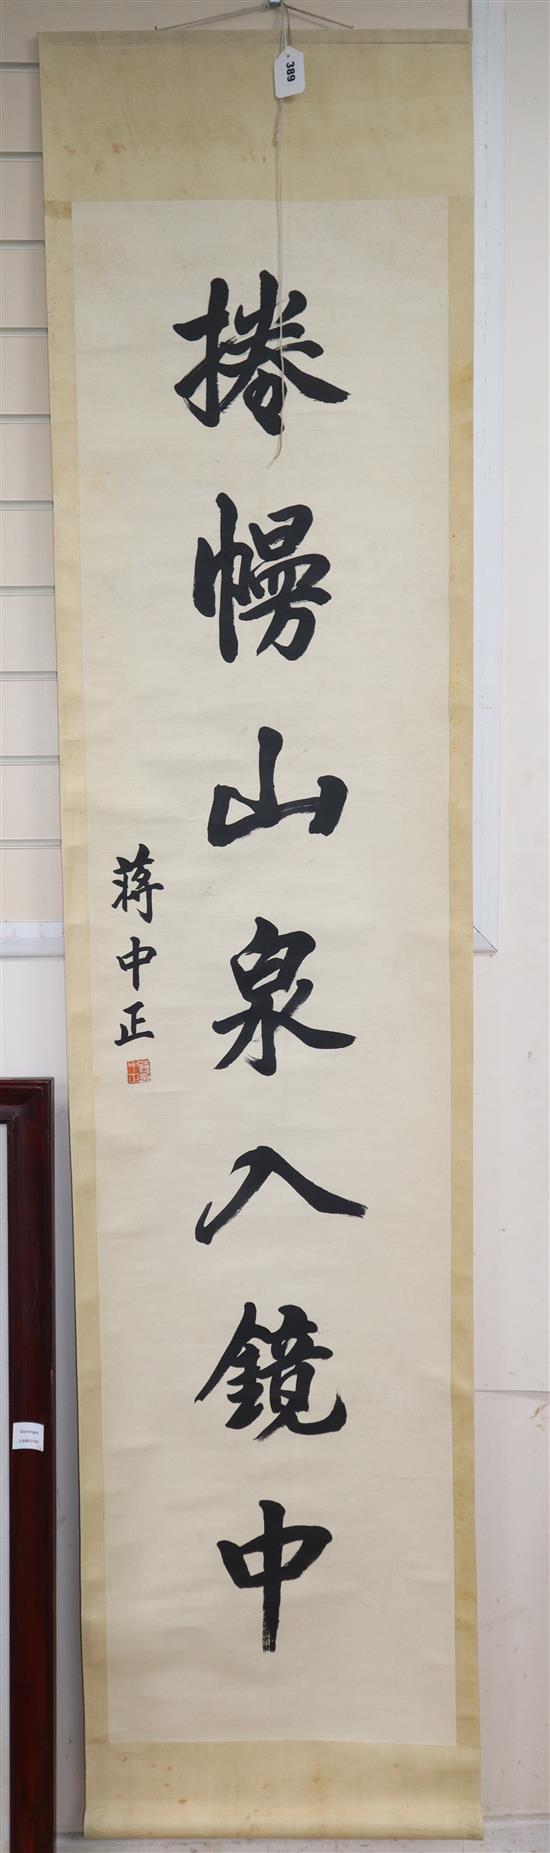 389
捲幔山泉入鏡中
蔣中正
Gorringes